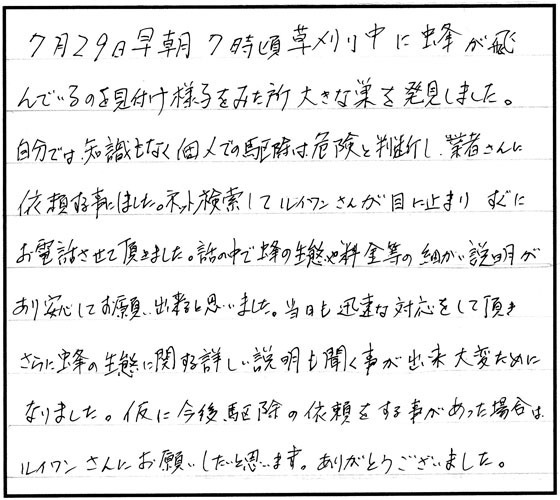 7月29日早朝 7時頃草刈り中に蜂が飛
んでいるのを見付け様子をみた所 大きな巣を発見しました。
自分では知識もなく個人での駆除は危険と判断し、業者さんに
依頼する事にしました。ネット検索してルイワンさんが目に止まり すぐに
お電話させて頂きました。話の中で蜂の生態や料金等の細かい説明が
あり安心してお願い出来ると思いました。当日も迅速な対応をして頂き
さらに蜂の生態に関する詳しい説明も聞く事が出来 大変ために
なりました。仮に今後駆除の依頼をする事があった場合は
ルイワンさんにお願いしたいと思います。ありがとうございました。